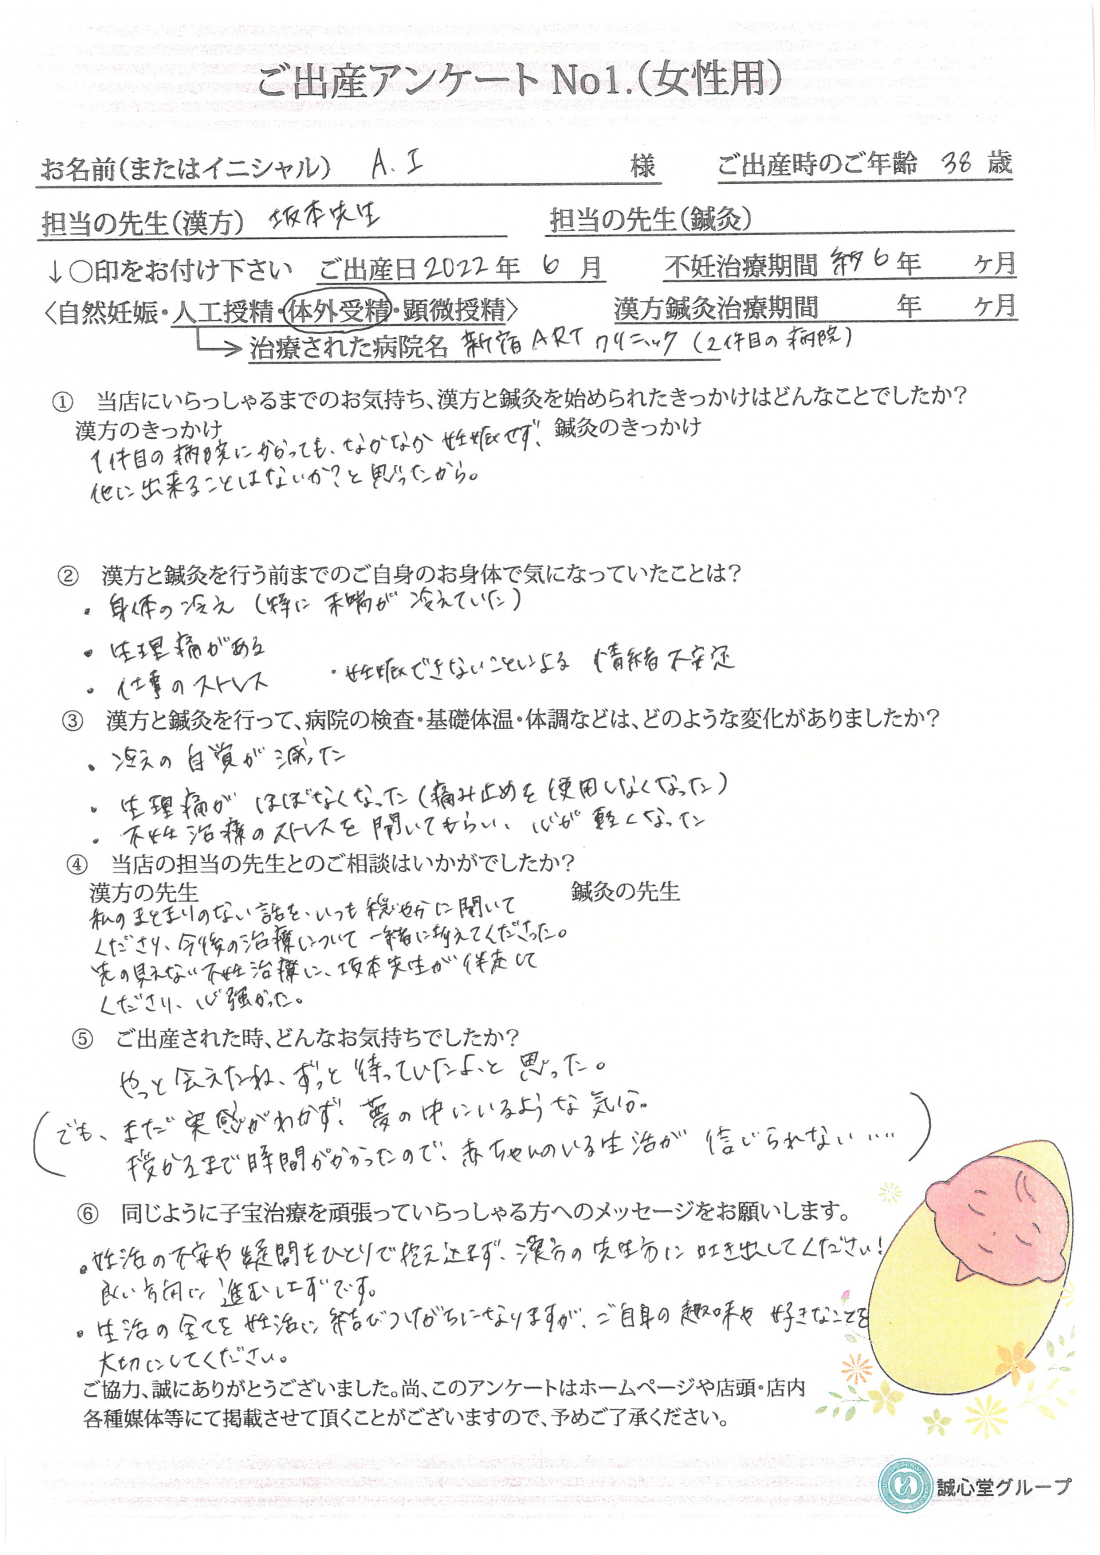 ご出産アンケート No1.(女性用)
お名前(またはイニシャル) A.I 様 ご出産時のご年齢 38 歳
担当の先生(漢方) 坂本先生 担当の先生(鍼灸)
↓○印をお付け下さい ご出産日2022年 6 月 不妊治療期間 約6年 ヶ月
〈自然妊娠・人工授精・体外受精・顕微授精〉 漢方鍼灸治療期間 年 ヶ月
治療された病院名 新宿ARTクリニック(2件目の病院)
① 当店にいらっしゃるまでのお気持ち、漢方と鍼灸を始められたきっかけはどんなことでしたか?
漢方のきっかけ 鍼灸のきっかけ
1件目の病院にかかっても、なかなか妊娠せず、
他に出来ることはないか?と思ったから。
② 漢方と鍼灸を行う前までのご自身のお身体で気になっていたことは?
・身体の冷え(特に末端が冷えていた)
・生理痛がある
・仕事のストレス ・妊娠できないことによる情緒不安定
③ 漢方と鍼灸を行って、病院の検査・基礎体温・体調などは、どのような変化がありましたか?
・冷えの自覚が減った
・生理痛がほぼなくなった(痛み止めを使用しなくなった)
・不妊治療のストレスを聞いてもらい、心が軽くなった
④ 当店の担当の先生とのご相談はいかがでしたか?
漢方の先生 鍼灸の先生
私のまとまりのない話を、いつも穏やかに聞いて
くださり、今後の治療について一緒に考えてくださった。
先の見えない不妊治療に、坂本先生が伴走して
くださり、心強かった。
⑤ ご出産された時、どんなお気持ちでしたか?
やっと会えたね、ずっと待っていたよ、と思った。
(でも、まだ実感がわかず、夢の中にいるような気分。
授かるまで時間がかかったので、赤ちゃんのいる生活が信じられない……)
⑥ 同じように子宝治療を頑張っていらっしゃる方へのメッセージをお願いします。
・妊活の不安や疑問をひとりで抱え込まず、漢方の先生方に吐き出してください!
良い方向に進むはずです。
・生活の全てを妊活に結びつけがちになりますが、ご自身の趣味や好きなことを
大切にしてください。
ご協力、誠にありがとうございました。尚、このアンケートはホームページや店頭・店内
各種媒体等にて掲載させて頂くことがございますので、予めご了承ください。
誠心堂グループ